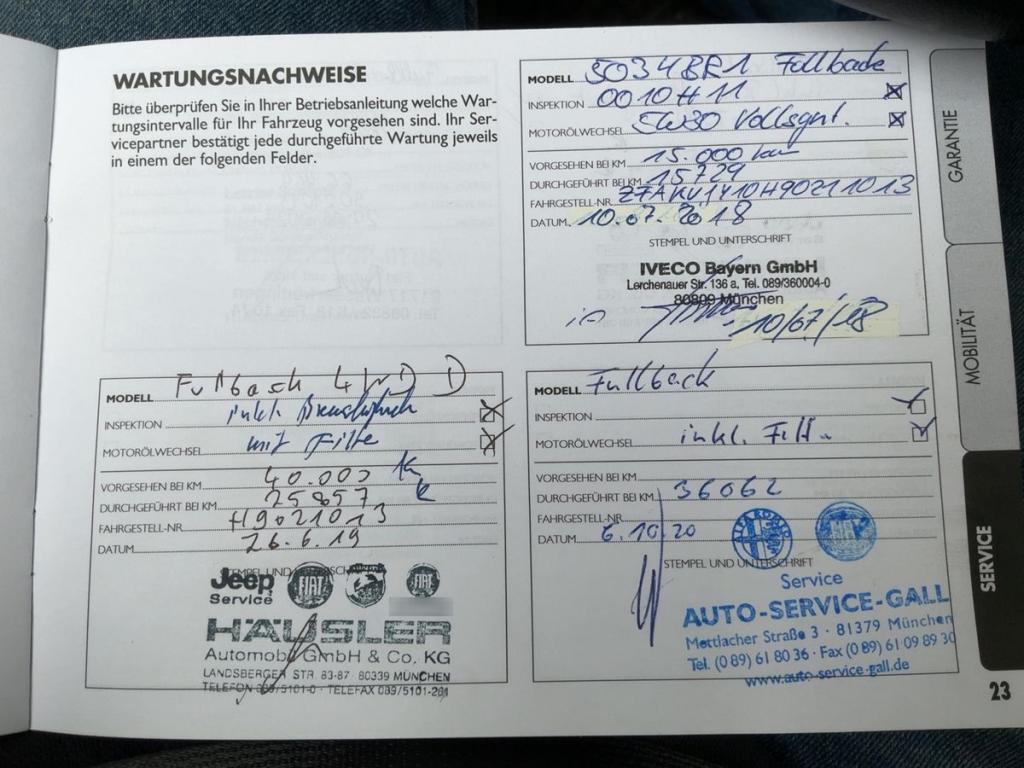 WARTUNGSNACHWEISE
Bitte überprüfen Sie in Ihrer Betriebsanleitung welche War-
tungsintervalle für Ihr Fahrzeug vorgesehen sind. Ihr Ser-
vicepartner bestätigt jede durchgeführte Wartung jeweils
in einem der folgenden Felder.
MODELL 5034BR1 Fullback
INSPEKTION 0010H11
MOTORÖLWECHSEL 5W30 Vollsynt.
VORGESEHEN BEI KM 15.000 km
DURCHGEFÜHRT BEI KM 15729
FAHRGESTELL-NR. ZFAKV1410H9021013
DATUM 10.07.2018
STEMPEL UND UNTERSCHRIFT
IVECO Bayern GmbH
Lerchenauer Str. 136 a, Tel. 089/360004-0
80809 München
10/07/18
MODELL Fullback 4WD
INSPEKTION inkl.
MOTORÖLWECHSEL mit Filter
VORGESEHEN BEI KM 40.000 Km
DURCHGEFÜHRT BEI KM 25857
FAHRGESTELL-NR H9021013
DATUM 26.6.19
STEMPEL UND UNTERSCHRIFT
Jeep FIAT FIAT
Service
HÄUSLER
Automobil GmbH & Co. KG
LANDSBERGER STR. 83-87 80339 MÜNCHEN
TELEFON 089/5101-0 · TELEFAX 089/5101-281
MODELL Fullback
INSPEKTION
MOTORÖLWECHSEL inkl. Filt
VORGESEHEN BEI KM
DURCHGEFÜHRT BEI KM 36062
FAHRGESTELL-NR.
DATUM 6.10.20
ALFA ROMEO
STEMPEL UND UNTERSCHRIFT
Service
AUTO-SERVICE-GALL
Mettlacher Straße 3 · 81379 München
Tel. (089) 61 80 36 · Fax (0 89) 61 09 89 30
www.auto-service-gall.de
GARANTIE
MOBILITÄT
SERVICE
23